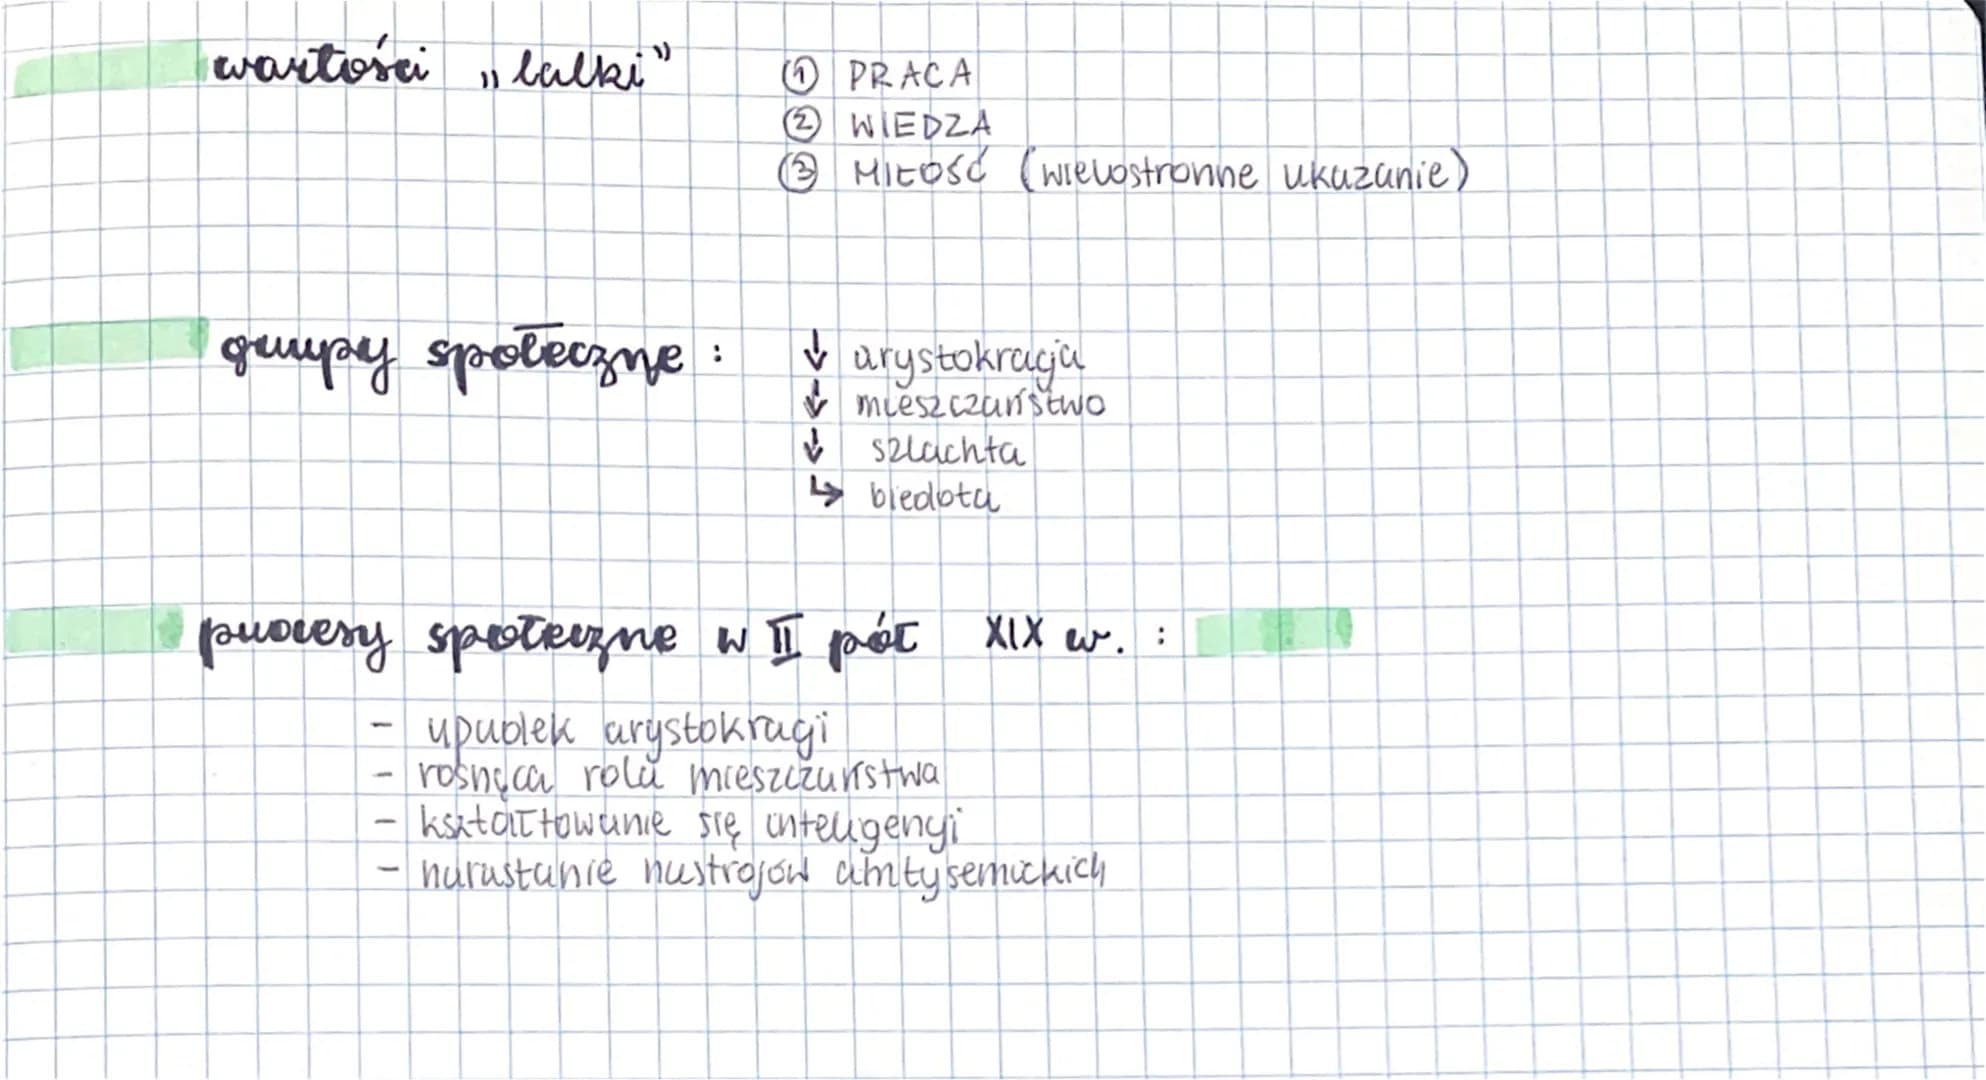 wartości „lalki"
① PRACA
② WIEDZA
③ MIŁOŚĆ (wielostronne ukazanie)
grupy społeczne :
↓ arystokracja
↓ mieszczaństwo
↓ szlachta
↳ biedota
procesy społeczne w II pół XIX w. :
- upadek arystokracji
- rosnąca rola mieszczaństwa
- kształtowanie się inteligencji
- narastanie nastrojów amtysemickich